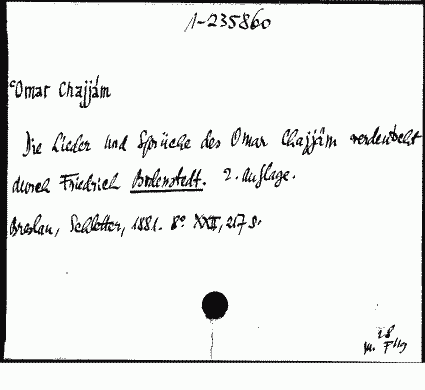 1-235860
ᶜOmar Chajjám
Die Lieder und Sprüche des Omar Chajjâm verdeutscht
durch Friedrich Bodenstedt. 2. Auflage.
Breslau, Schletter, 1881. 8° XXII, 217 S.
28
M. F 119